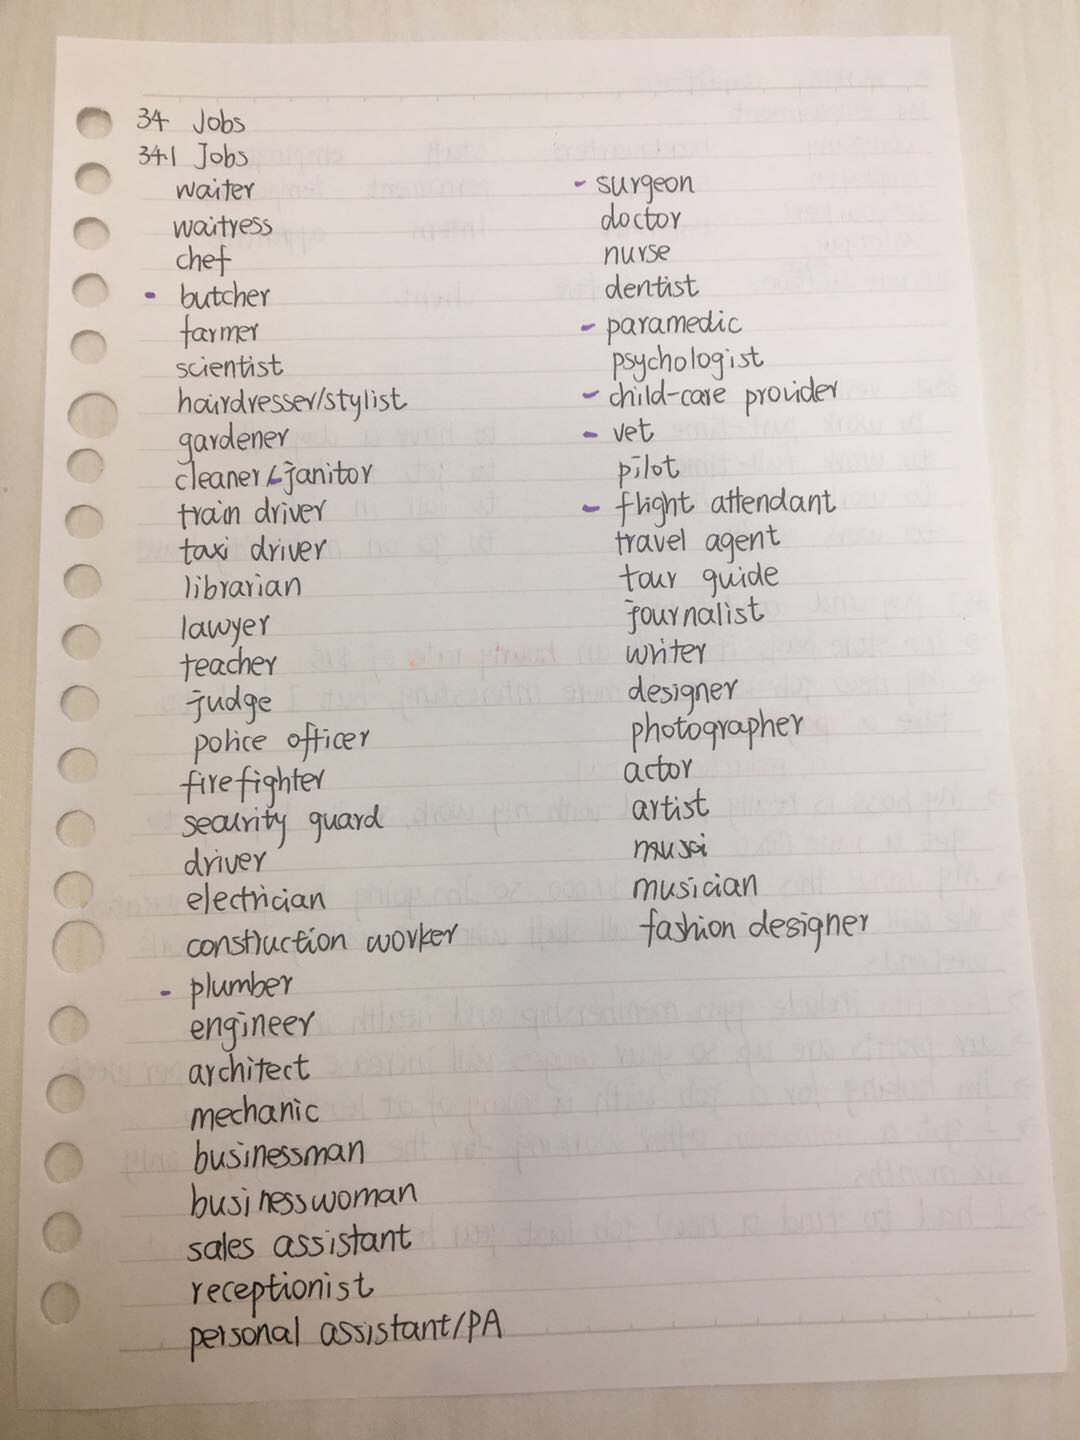 34 Jobs
34.1 Jobs
waiter
waitress
chef
- butcher
farmer
scientist
hairdresser/stylist
gardener
cleaner/janitor
train driver
taxi driver
librarian
lawyer
teacher
judge
police officer
firefighter
security guard
driver
electrician
construction worker
- plumber
engineer
architect
mechanic
businessman
businesswoman
sales assistant
receptionist
personal assistant/PA
- surgeon
doctor
nurse
dentist
- paramedic
psychologist
- child-care provider
- vet
pilot
- flight attendant
travel agent
tour guide
journalist
writer
designer
photographer
actor
artist
musician
fashion designer